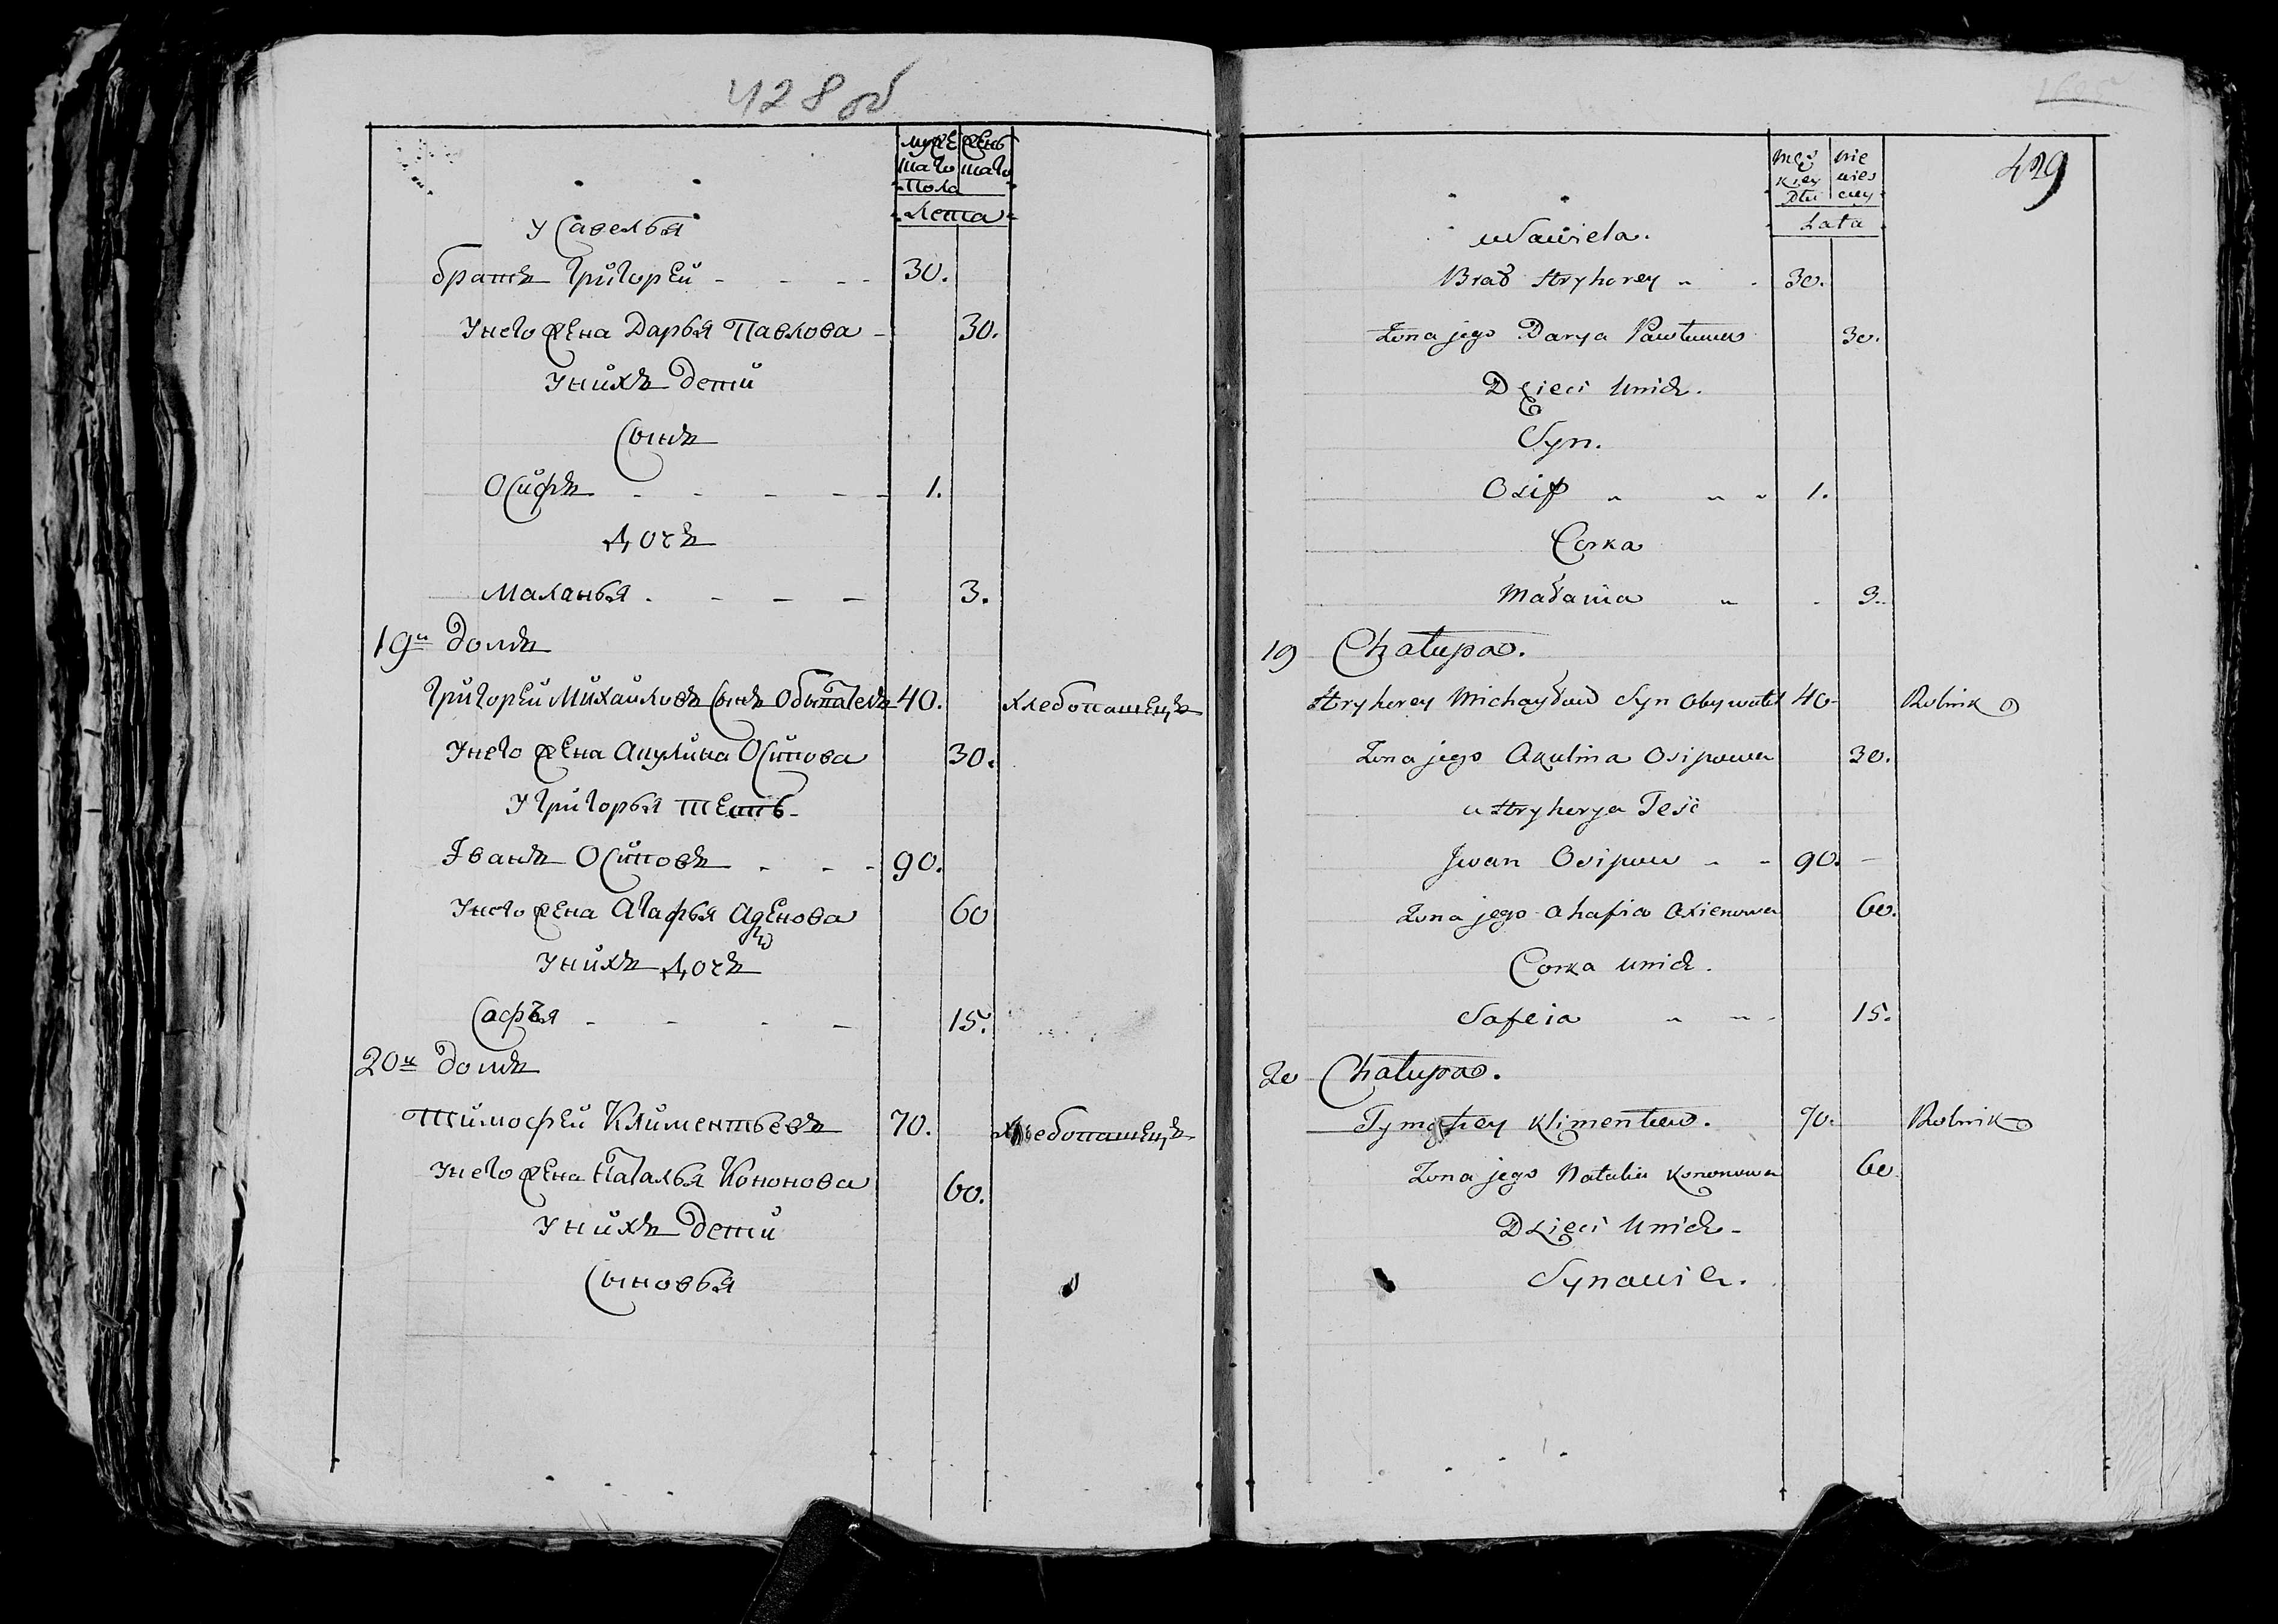 428 об
мужес
каго
женс
каго
Пола
Лета
У Савелья
братъ Григорей 30.
У него жена Дарья Павлова 30.
У нихъ дети
Сынъ
Осифъ 1.
Дочъ
Маланья 3.
19й домъ
Григорей Михайловъ Сынъ Обыватель 40. Хлебопашецъ
У него жена Акулина Осипова 30.
У Григорья тесть
Иванъ Осиповъ 90.
У него жена Агафья 60
У нихъ Дочъ
Сафья 15.
20й домъ
Тимофей Климентьевъ 70. Хлебопашецъ
У него жена Наталья Кононова 60.
У нихъ Дети
Сыновья
429
męz
kiey
Płci
nie
wies
ciey
Lata
u Sawieła.
Brat Hryhorey 30.
Żona jego Darya Pawłowa 30.
Dzieci u nich.
Syn.
Osif 1.
Corka
Małania 3.
19 Chałupa.
Hryhorey Michayłow Syn Obywatel 40 Rolnik
Żona jego Akulina Osipowa 30.
u Hryhorya Teść
Jwan Osipow 90.
Żona jego Ahafia Axienowa 60.
Corka u nich.
Safeia 15.
20 Chałupa.
Tymofiey Klimentiew. 70. Rolnik
Żona jego Natalia Kononowa 60
Dzieci u nich
Synowie.